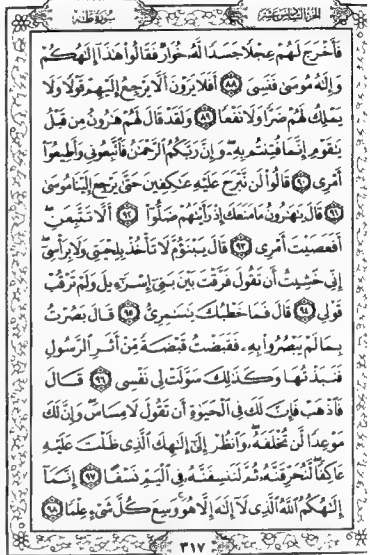 الجزء السادس عشر
سورة طه
فَأَخْرَجَ لَهُمْ عِجْلًا جَسَدًا لَّهُۥ خُوَارٌ فَقَالُوا۟ هَٰذَآ إِلَٰهُكُمْ
وَإِلَٰهُ مُوسَىٰ فَنَسِىَ ٨٨ أَفَلَا يَرَوْنَ أَلَّا يَرْجِعُ إِلَيْهِمْ قَوْلًا وَلَا
يَمْلِكُ لَهُمْ ضَرًّا وَلَا نَفْعًا ٨٩ وَلَقَدْ قَالَ لَهُمْ هَٰرُونُ مِن قَبْلُ
يَٰقَوْمِ إِنَّمَا فُتِنتُم بِهِۦ وَإِنَّ رَبَّكُمُ ٱلرَّحْمَٰنُ فَٱتَّبِعُونِى وَأَطِيعُوٓا۟
أَمْرِى ٩٠ قَالُوا۟ لَن نَّبْرَحَ عَلَيْهِ عَٰكِفِينَ حَتَّىٰ يَرْجِعَ إِلَيْنَا مُوسَىٰ
٩١ قَالَ يَٰهَٰرُونُ مَا مَنَعَكَ إِذْ رَأَيْتَهُمْ ضَلُّوٓا۟ ٩٢ أَلَّا تَتَّبِعَنِ
أَفَعَصَيْتَ أَمْرِى ٩٣ قَالَ يَبْنَؤُمَّ لَا تَأْخُذْ بِلِحْيَتِى وَلَا بِرَأْسِىٓ
إِنِّى خَشِيتُ أَن تَقُولَ فَرَّقْتَ بَيْنَ بَنِىٓ إِسْرَٰٓءِيلَ وَلَمْ تَرْقُبْ
قَوْلِى ٩٤ قَالَ فَمَا خَطْبُكَ يَٰسَٰمِرِىُّ ٩٥ قَالَ بَصُرْتُ
بِمَا لَمْ يَبْصُرُوا۟ بِهِۦ فَقَبَضْتُ قَبْضَةً مِّنْ أَثَرِ ٱلرَّسُولِ
فَنَبَذْتُهَا وَكَذَٰلِكَ سَوَّلَتْ لِى نَفْسِى ٩٦ قَالَ
فَٱذْهَبْ فَإِنَّ لَكَ فِى ٱلْحَيَوٰةِ أَن تَقُولَ لَا مِسَاسَ وَإِنَّ لَكَ
مَوْعِدًا لَّن تُخْلَفَهُۥ وَٱنظُرْ إِلَىٰٓ إِلَٰهِكَ ٱلَّذِى ظَلْتَ عَلَيْهِ
عَاكِفًا لَّنُحَرِّقَنَّهُۥ ثُمَّ لَنَنسِفَنَّهُۥ فِى ٱلْيَمِّ نَسْفًا ٩٧ إِنَّمَآ
إِلَٰهُكُمُ ٱللَّهُ ٱلَّذِى لَآ إِلَٰهَ إِلَّا هُوَ وَسِعَ كُلَّ شَىْءٍ عِلْمًا ٩٨
٣١٧